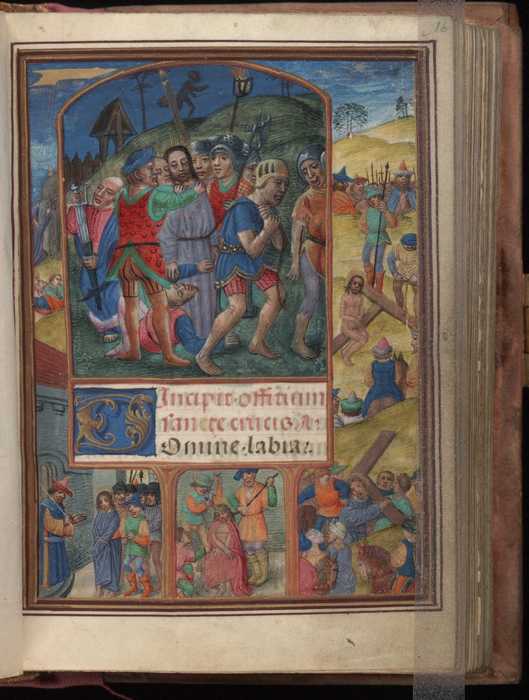 16
Incipit officium
sancte crucis
Domine labia